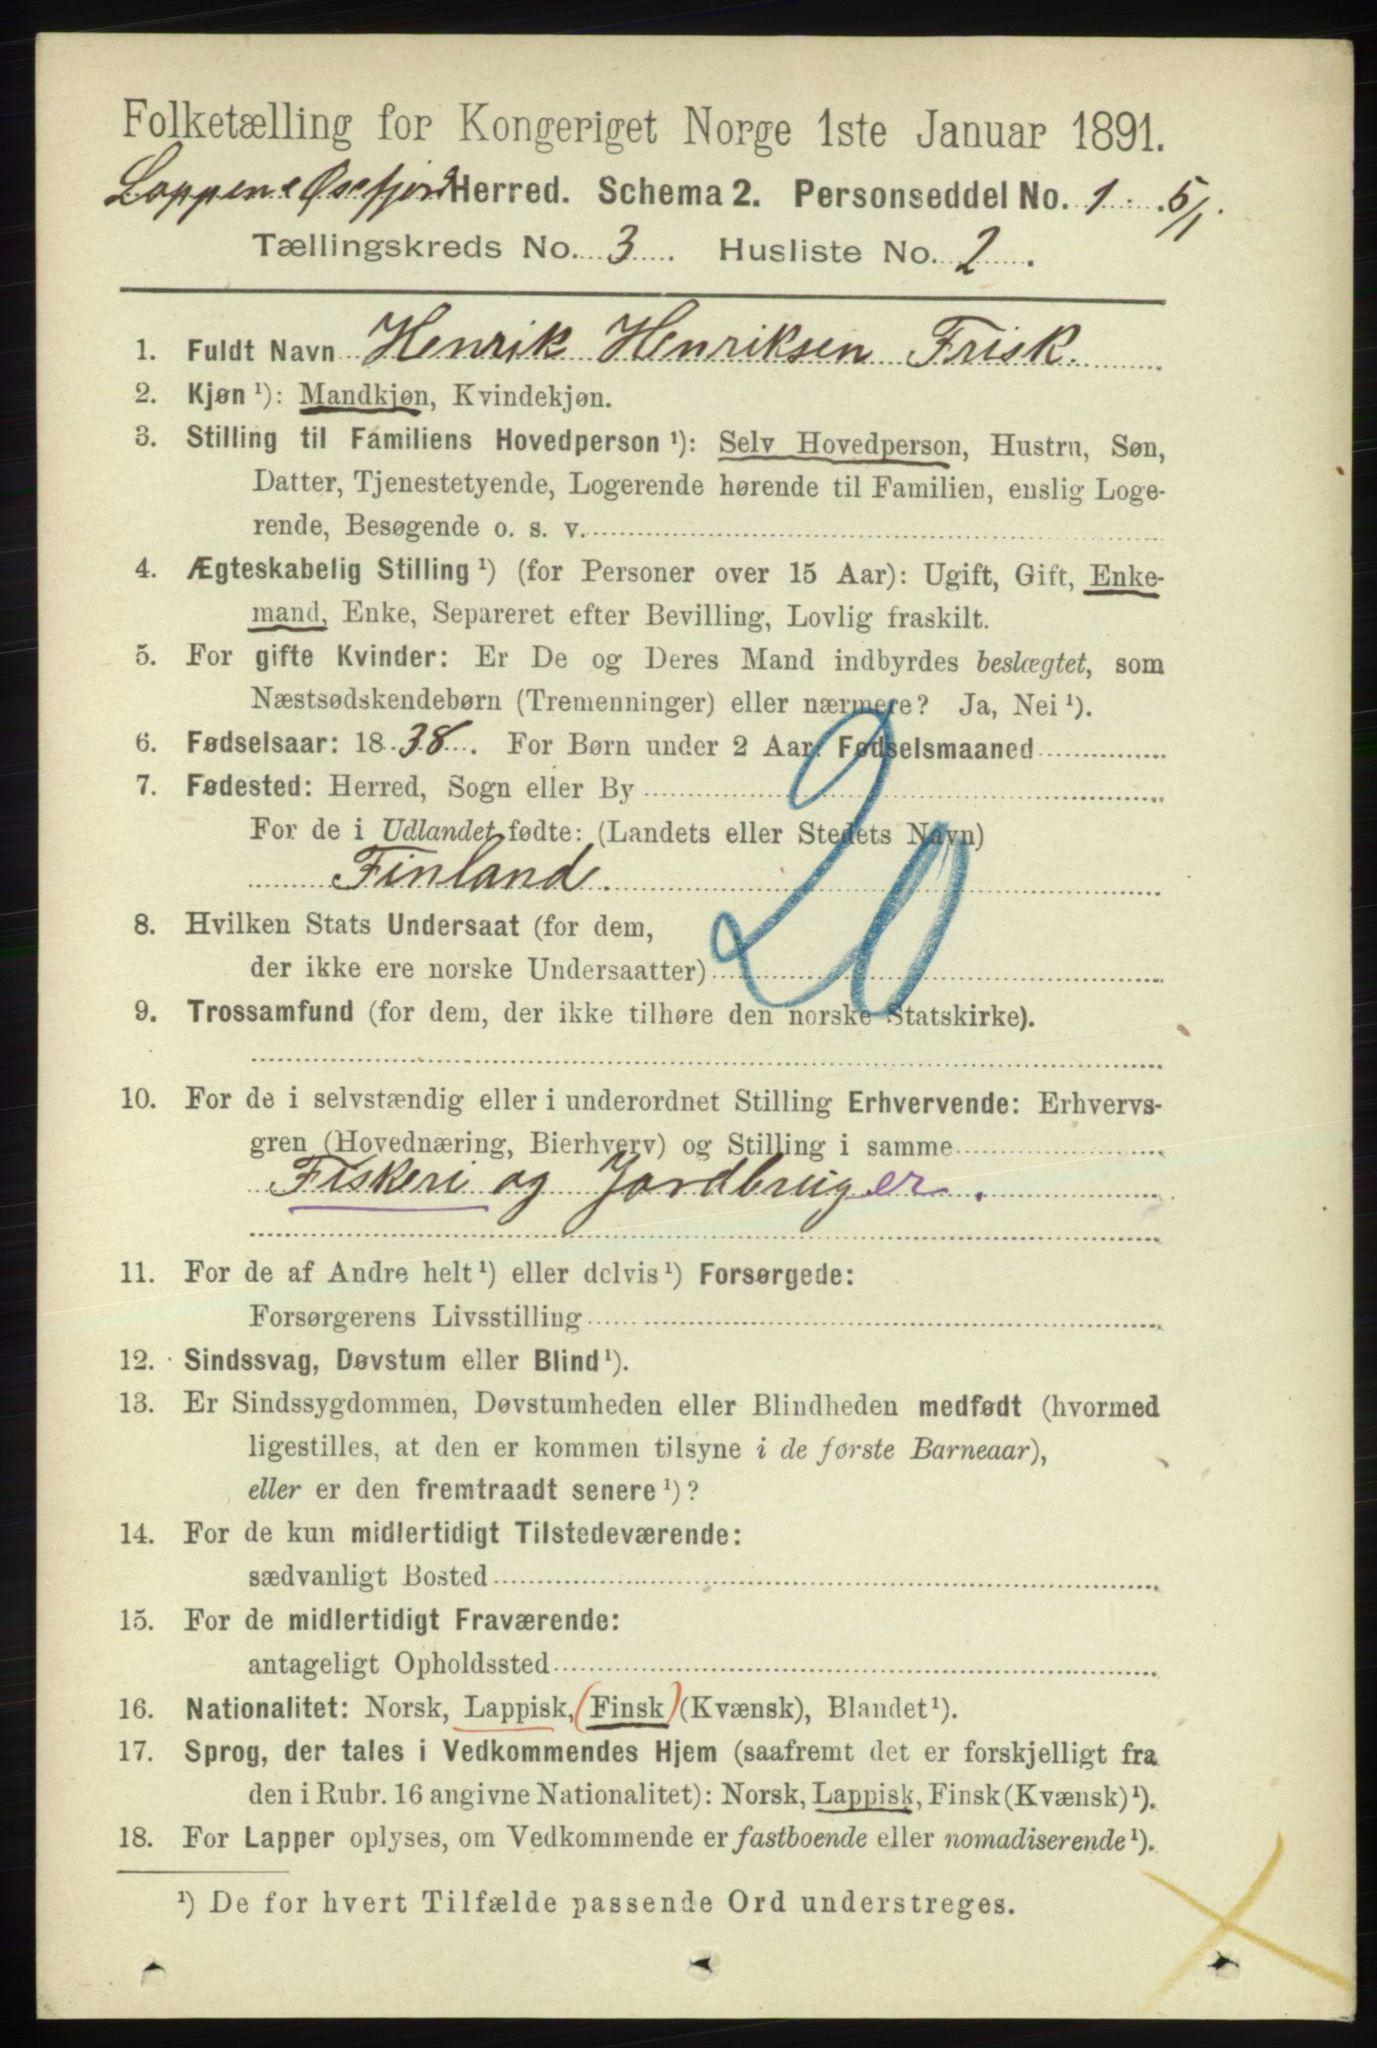 Folketælling for Kongeriget Norge 1ste Januar 1891.
Loppen & Øxfjord Herred. Schema 2. Personseddel No. 1 5/1.
Tællingskreds No. 3. Husliste No. 2.
1. Fuldt Navn Henrik Henriksen Frisk.
2. Kjøn ¹): Mandkjøn, Kvindekjøn.
3. Stilling til Familiens Hovedperson ¹): Selv Hovedperson, Hustru, Søn,
Datter, Tjenestetyende, Logerende hørende til Familien, enslig Loge-
rende, Besøgende o. s. v.
4. Ægteskabelig Stilling ¹) (for Personer over 15 Aar): Ugift, Gift, Enke-
mand, Enke, Separeret efter Bevilling, Lovlig fraskilt.
5. For gifte Kvinder: Er De og Deres Mand indbyrdes beslægtet, som
Næstsødskendebørn (Tremenninger) eller nærmere? Ja, Nei ¹).
6. Fødselsaar: 1838. For Børn under 2 Aar: Fødselsmaaned
7. Fødested: Herred, Sogn eller By
For de i Udlandet fødte: (Landets eller Stedets Navn)
Finland.
20
8. Hvilken Stats Undersaat (for dem,
der ikke ere norske Undersaatter)
9. Trossamfund (for dem, der ikke tilhøre den norske Statskirke).
10. For de i selvstændig eller i underordnet Stilling Erhvervende: Erhvervs-
gren (Hovednæring, Bierhverv) og Stilling i samme
Fiskeri og Jordbruger.
11. For de af Andre helt ¹) eller delvis ¹) Forsørgede:
Forsørgerens Livsstilling
12. Sindssvag, Døvstum eller Blind ¹).
13. Er Sindssygdommen, Døvstumheden eller Blindheden medfødt (hvormed
ligestilles, at den er kommen tilsyne i de første Barneaar),
eller er den fremtraadt senere ¹)?
14. For de kun midlertidigt Tilstedeværende:
sædvanligt Bosted
15. For de midlertidigt Fraværende:
antageligt Opholdssted
16. Nationalitet: Norsk, Lappisk, (Finsk) (Kvænsk), Blandet ¹).
17. Sprog, der tales i Vedkommendes Hjem (saafremt det er forskjelligt fra
den i Rubr. 16 angivne Nationalitet): Norsk, Lappisk, Finsk (Kvænsk) ¹).
18. For Lapper oplyses, om Vedkommende er fastboende eller nomadiserende ¹).
¹) De for hvert Tilfælde passende Ord understreges.